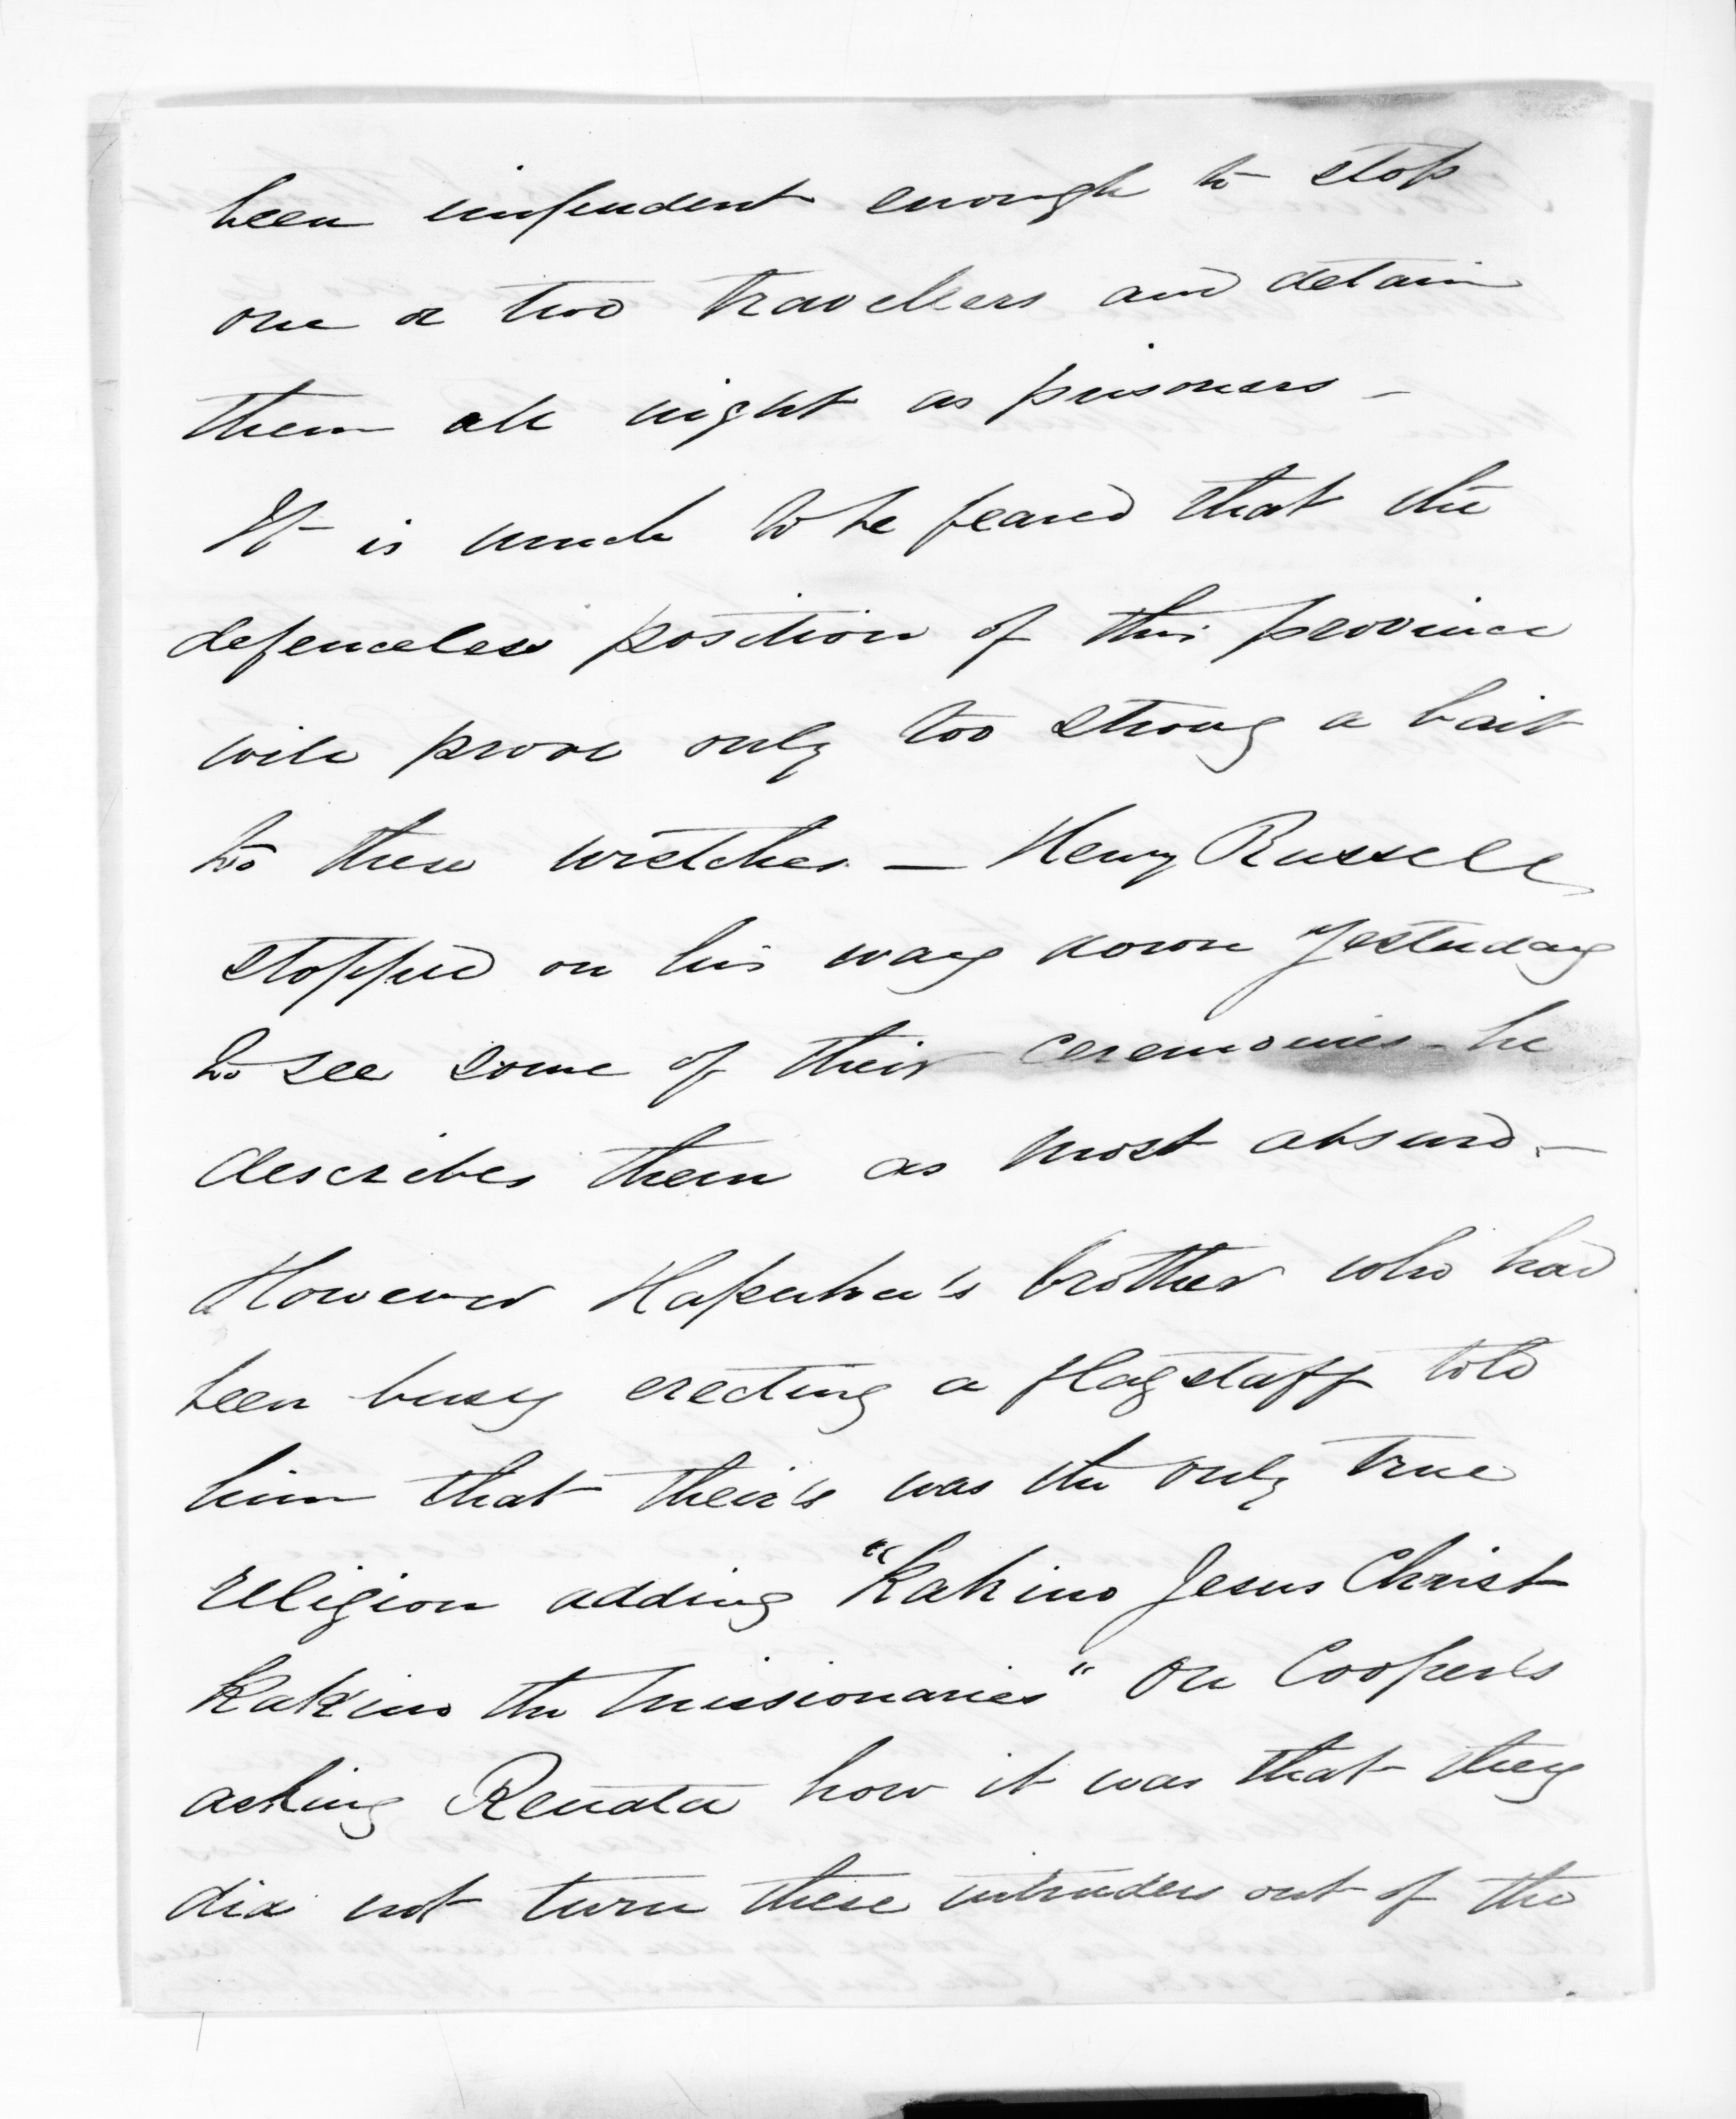 been impudent enough to stop
one or two travellers and detain
them all night as prisoners -
It is much to be feared that the
defenceless position of this province
will prove only too strong a bait
to these wretches - Henry Russell
stopped on his way down yesterday
to see some of their ceremonies - he
describes them as most absurd. -
However Hapuku's brother who had
been busy erecting a flagstaff told
him that their's was the only true
religion adding "Kakino Jesus Christ
Kakino the missionaries" On Cooper's
asking Renata how it was that they
did not turn these intruders out of the